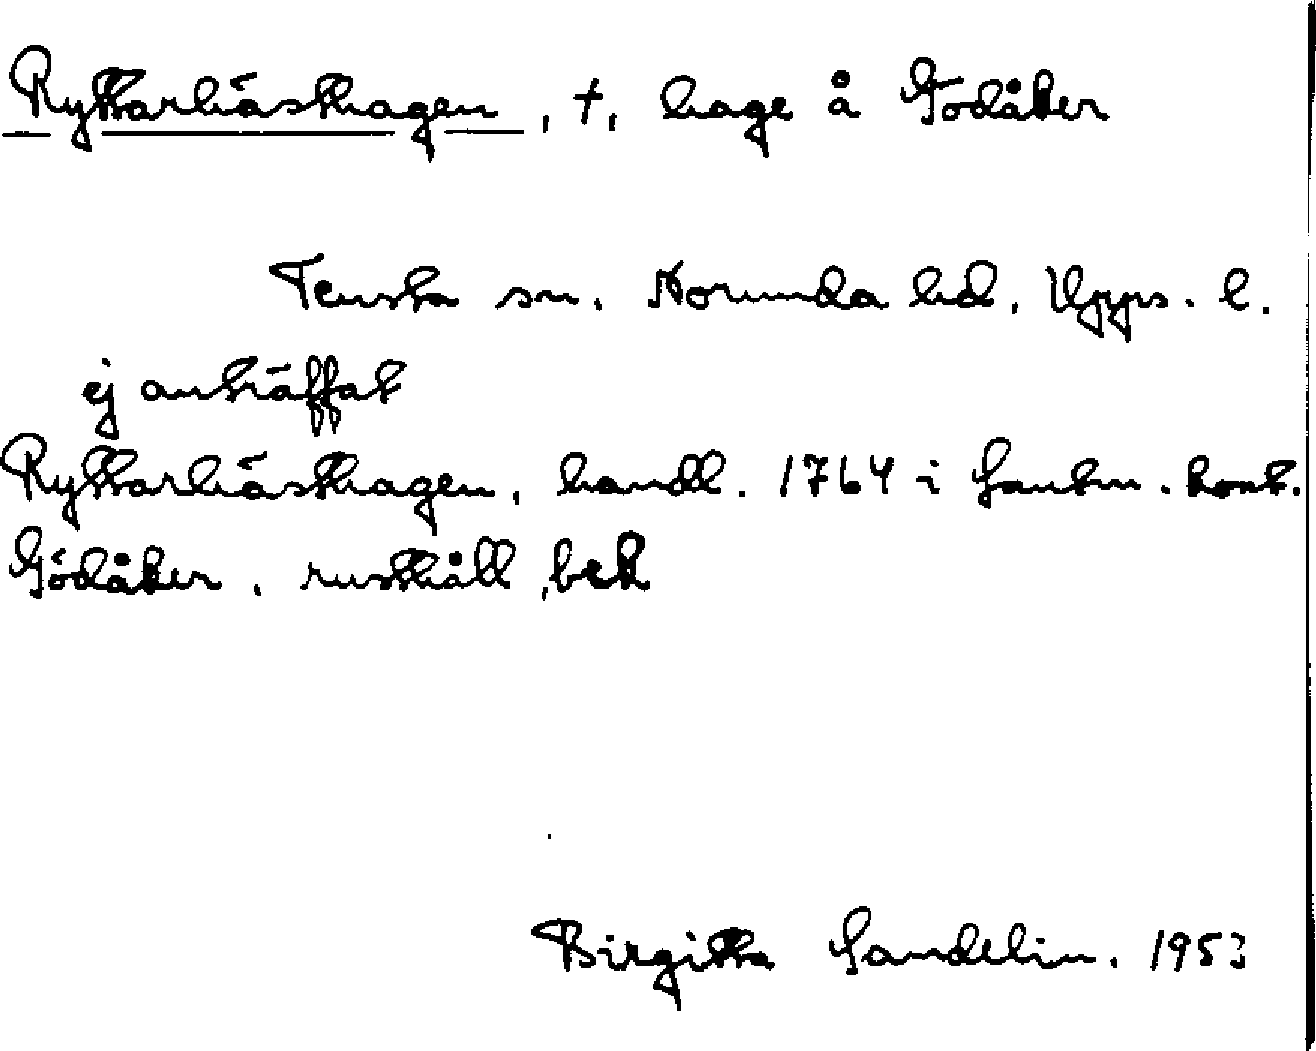 Ryttarhästhagen, †, hage å Gödåker
Tensta sn. Norunda hd, Upps. l.
ej anträffat
Ryttarhästhagen, handl. 1764 i Lantm. kont.
Gödåker, rusthåll, bek
Birgitta Sandelin. 1953